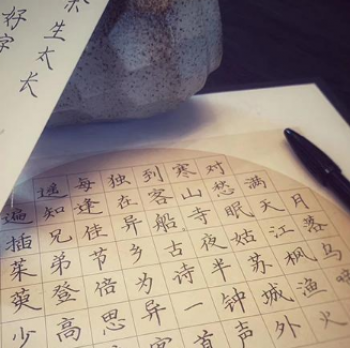 生太长
好字
月落乌啼
满天江枫渔火
对愁眠姑苏城外
寒山寺夜半钟声
到客船古诗一首
独在异乡为异
每逢佳节倍思
遥知兄弟登高
遍插茱萸少